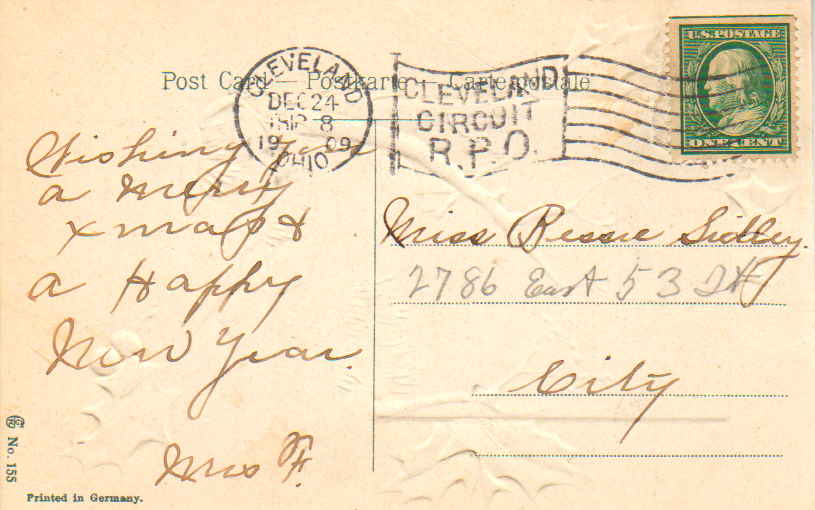 U.S. POSTAGE
ONE CENT
Post Card — Postkarte — Carte postale
CLEVELAND
DEC 24
8
1909
OHIO
CLEVELAND
CIRCUIT
R.P.O.
Wishing you
a Merry
Xmas &
a Happy
New Year.
Mrs F.
Miss Bessie Sidley
2786 East 53 St
City
No. 155
Printed in Germany.